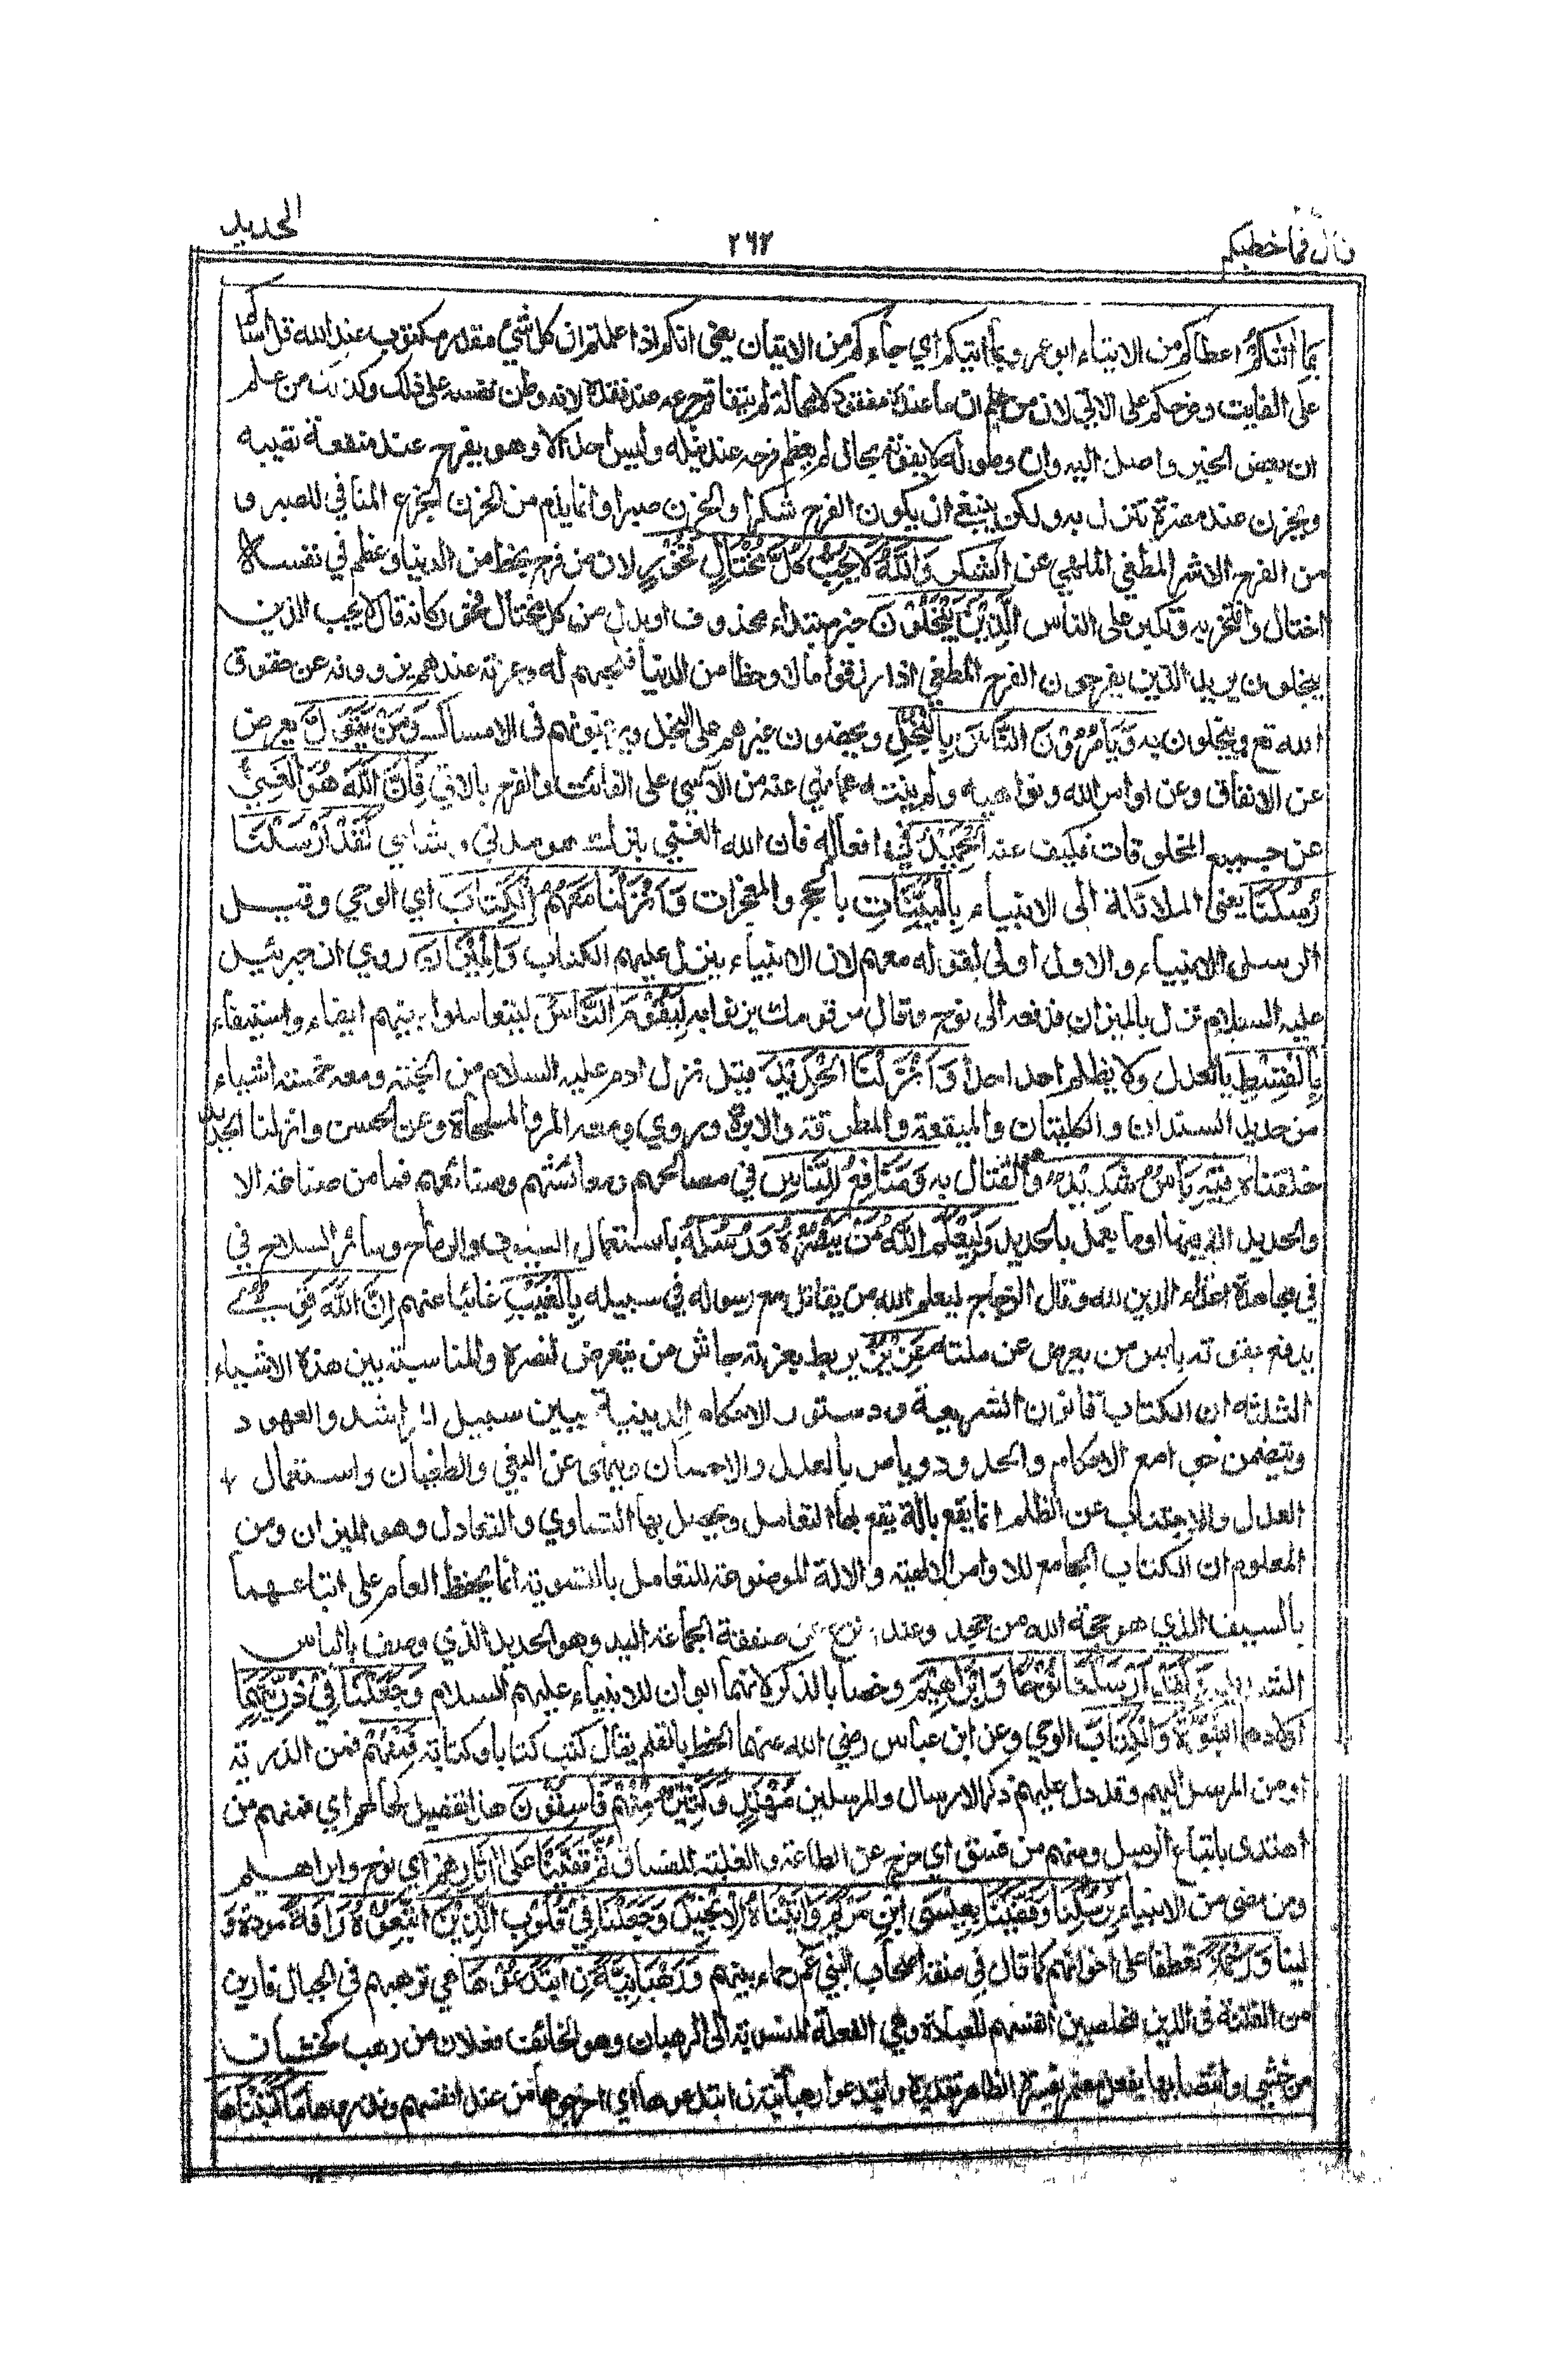 الحديد
٢٦٢
قال فما خطبكم
بِمَا اٰتٰىكُمْ اعطاكم من الايتاء ابو عمرو بما اتيكم اي جاءكم من الاتيان يعني انكم اذا علمتم ان كل شيء مقدر مكتوب عند الله قل اساكم
على الفايت وفرحكم على الاتي لان من علم ان ما عنده مفقود لا محالة لم يتفاقم جزعه عند فقده لانه وطن نفسه على ذلك وكذلك من علم
ان بعض الخير واصل اليه وان وصوله لا يفوته بحال لم يعظم فرحه عند نيله وليس احد الا وهو يفرح عند منفعة تصيبه
ويحزن عند مضرة تنزل به ولكن ينبغي ان يكون الفرح شكرا والحزن صبرا وانما يذم من الحزن الجزع المنافي للصبر و
من الفرح الاشر المطغي الملهي عن الشكر وَاللّٰهُ لَا يُحِبُّ كُلَّ مُخْتَالٍ فَخُوْرٍ لان من فرح بحظ من الدنيا وعظم في نفسه
اختال وافتخر به وتكبر على الناس الَّذِيْنَ يَبْخَلُوْنَ خبر مبتداء محذوف او بدل من كل مختال فخور كانه قال لا يحب الذين
يبخلون يريد الذين يفرحون الفرح المطغي اذا رزقوا مالا وحظا من الدنيا فلحبهم له وعزته عندهم يزوونه عن حقوق
الله تع ويبخلون به وَيَاْمُرُوْنَ النَّاسَ بِالْبُخْلِ ويحضون غيرهم على البخل ويرغبونهم في الامساك وَمَنْ يَّتَوَلَّ يعرض
عن الانفاق وعن اوامر الله ونواهيه ولم ينته عما نهي عنه من الاسي على الفائت والفرح بالاتي فَاِنَّ اللّٰهَ هُوَ الْغَنِيُّ
عن جميع المخلوقات فكيف عنه الْحَمِيْدُ في افعاله فان الله الغني بترك هو مدني وشامي لَقَدْ اَرْسَلْنَا
رُسُلَنَا يعني الملائكة الى الانبياء بِالْبَيِّنٰتِ بالحجج والمعجزات وَاَنْزَلْنَا مَعَهُمُ الْكِتَابَ اي الوحي وقيل
الرسل الانبياء والاول اولى لقوله معهم لان الانبياء ينزل عليهم الكتاب وَالْمِيْزَانَ روي ان جبرئيل
عليه السلام نزل بالميزان فدفعه الى نوح وقال مر قومك يزنوا به لِيَقُوْمَ النَّاسُ ليتعاملوا بينهم ايفاء واستيفاء
بِالْقِسْطِ بالعدل ولا يظلم احد احدا وَاَنْزَلْنَا الْحَدِيْدَ قيل نزل ادم عليه السلام من الجنة ومعه خمسة اشياء
من حديد السندان والكلبتان والميقعة والمطرقة والابرة وروي ومعه المر والمسحاة وعن الحسن وانزلنا الحديد
خلقناه فِيْهِ بَاْسٌ شَدِيْدٌ وهو القتال به وَّمَنَافِعُ لِلنَّاسِ في مصالحهم ومعائشهم وصنائعهم فما من صناعة الا
والحديد الة فيها او ما يعمل بالحديد وَلِيَعْلَمَ اللّٰهُ مَنْ يَّنْصُرُهٗ وَرُسُلَهٗ باستعمال السيوف والرماح وسائر السلاح في
في مجاهدة اعداء الدين لله وقال الزجاج ليعلم الله من يقاتل مع رسوله في سبيله بِالْغَيْبِ غائبا عنهم اِنَّ اللّٰهَ قَوِيٌّ
يدفع بقوته باس من يعرض عن ملته عَزِيْزٌ يربط بعزته جاش من يتعرض لنصرة والمناسبة بين هذه الاشياء
الثلثة ان الكتاب قانون الشريعة ودستور الاحكام الدينية يبين سبيل المراشد والعهود
ويتضمن جوامع الاحكام والحدود ويامر بالعدل والاحسان وينهى عن البغي والطغيان واستعمال
العدل والاجتناب عن الظلم انما يقع بالة يقع بها التعامل ويحصل بها التساوي والتعادل وهو الميزان ومن
المعلوم ان الكتاب الجامع للاوامر الالهية والالة الموضوعة للتعامل بالتسوية انما يحفظ العامر على اتباعهما
بالسيف الذي هو حجة الله من جحد وعند نزع من صفقة الجماعة اليد وهو الحديد الذي وصف بالباس
الشديد وَلَقَدْ اَرْسَلْنَا نُوْحًا وَّاِبْرَاهِيْمَ وخصا بالذكر لانهما ابوان للانبياء عليهم السلام وَجَعَلْنَا فِيْ ذُرِّيَّتِهِمَا
اولادهما النُّبُوَّةَ وَالْكِتَابَ الوحي وعن ابن عباس رضي الله عنهما الخط بالقلم يقال كتب كتابا وكتابة فَمِنْهُمْ فمن الذرية
او من المرسل اليهم وقد دل عليهم ذكر الارسال والمرسلين مُهْتَدٍ وَكَثِيْرٌ مِّنْهُمْ فَاسِقُوْنَ هذا تفصيل لحالهم اي فمنهم من
اهتدى باتباع الرسل ومنهم من فسق اي خرج عن الطاعة والغلبة للفساق ثُمَّ قَفَّيْنَا عَلٰى اٰثَارِهِمْ اي نوح وابراهيم
ومن مضى من الانبياء بِرُسُلِنَا وَقَفَّيْنَا بِعِيْسَى ابْنِ مَرْيَمَ وَاٰتَيْنَاهُ الْاِنْجِيْلَ وَجَعَلْنَا فِيْ قُلُوْبِ الَّذِيْنَ اتَّبَعُوْهُ رَاْفَةً مودة و
لينا وَرَحْمَةً تعطفا على اخوانهم كما قال في صفة اصحاب النبي عم رحماء بينهم وَرَهْبَانِيَّةَ نِ ابْتَدَعُوْهَا هي ترهبهم في الجبال فارين
من الفتنة في الدين مخلصين انفسهم للعبادة وهي الفعلة المنسوبة الى الرهبان وهو الخائف فعلان من رهب كخشيان
من خشي وانتصابها بفعل مضمر يفسره الظاهر تقديره وابتدعوا رهبانية ن ابتدعوها اي اخرجوها من عند انفسهم ونذروها مَا كَتَبْنَاهَا